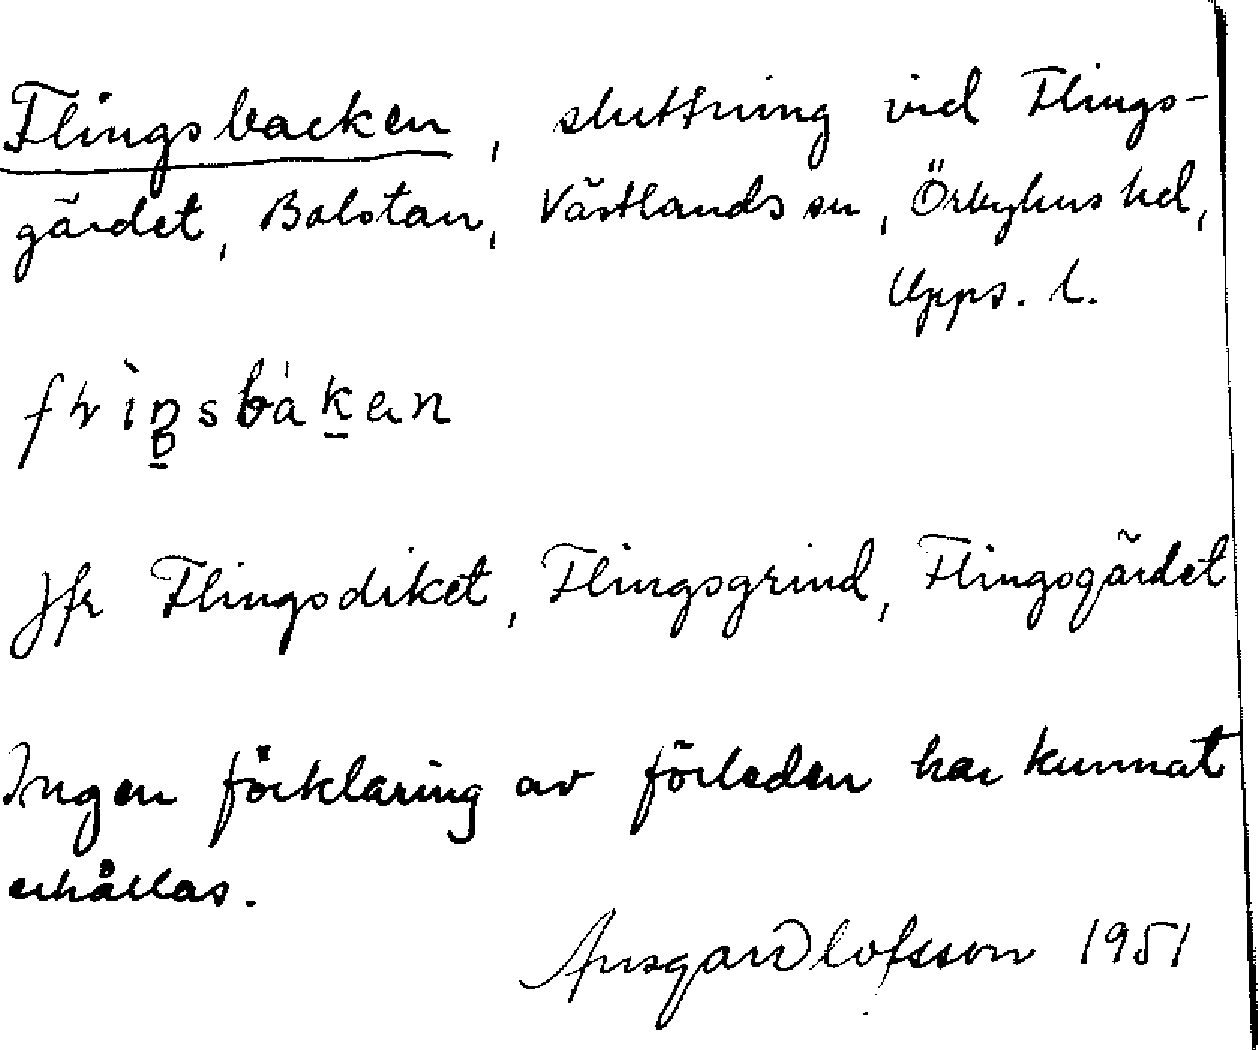 Flingsbacken, sluttning vid Flings-
gärdet, Bolstan, Västlands sn, Örbyhus hd,
Upps. l.
Jfr Flingsdiket, Flingsgrind, Flingsgärdet
Ingen förklaring av förleden har kunnat
erhållas.
Ansgar Olofsson 1951